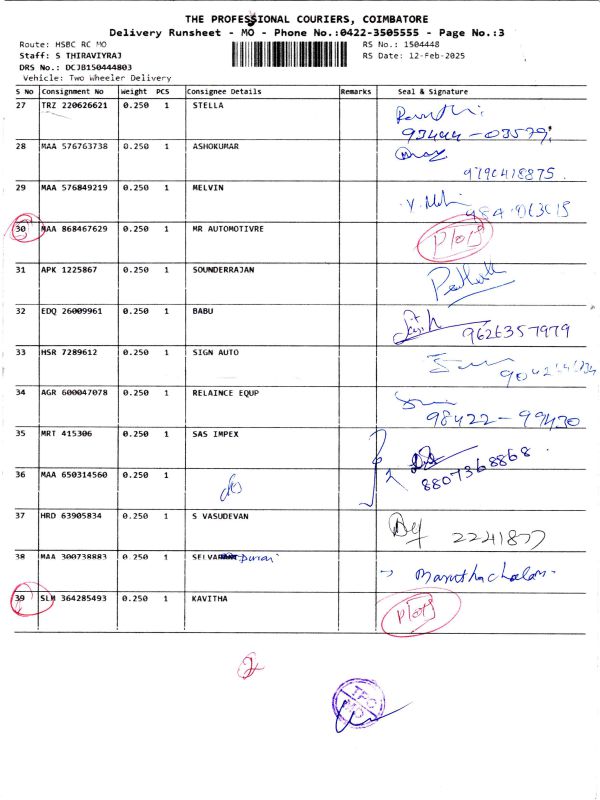 THE PROFESSIONAL COURIERS, COIMBATORE
Delivery Runsheet - MO - Phone No.:0422-3505555 - Page No.:3
Route: HSBC RC MO
RS No.: 1504448
Staff: S THIRAVIYRAJ
RS Date: 12-Feb-2025
DRS No.: DCJB150444803
Vehicle: Two Wheeler Delivery
S No Consignment No Weight PCS Consignee Details Remarks Seal & Signature
27 TRZ 220626621 0.250 1 STELLA
93444-03579
28 MAA 576763738 0.250 1 ASHOKUMAR
9790418875
29 MAA 576849219 0.250 1 MELVIN
30 MAA 868467629 0.250 1 MR AUTOMOTIVRE
31 APK 1225867 0.250 1 SOUNDERRAJAN
32 EDQ 26009961 0.250 1 BABU
9626357979
33 HSR 7289612 0.250 1 SIGN AUTO
34 AGR 600047078 0.250 1 RELAINCE EQUP
98422-99430
35 MRT 415306 0.250 1 SAS IMPEX
8807368868
36 MAA 650314560 0.250 1
37 HRD 63905834 0.250 1 S VASUDEVAN
2241877
38 MAA 300738883 0.250 1
Maruthachalam
39 SLM 364285493 0.250 1 KAVITHA
2
TPC
MO